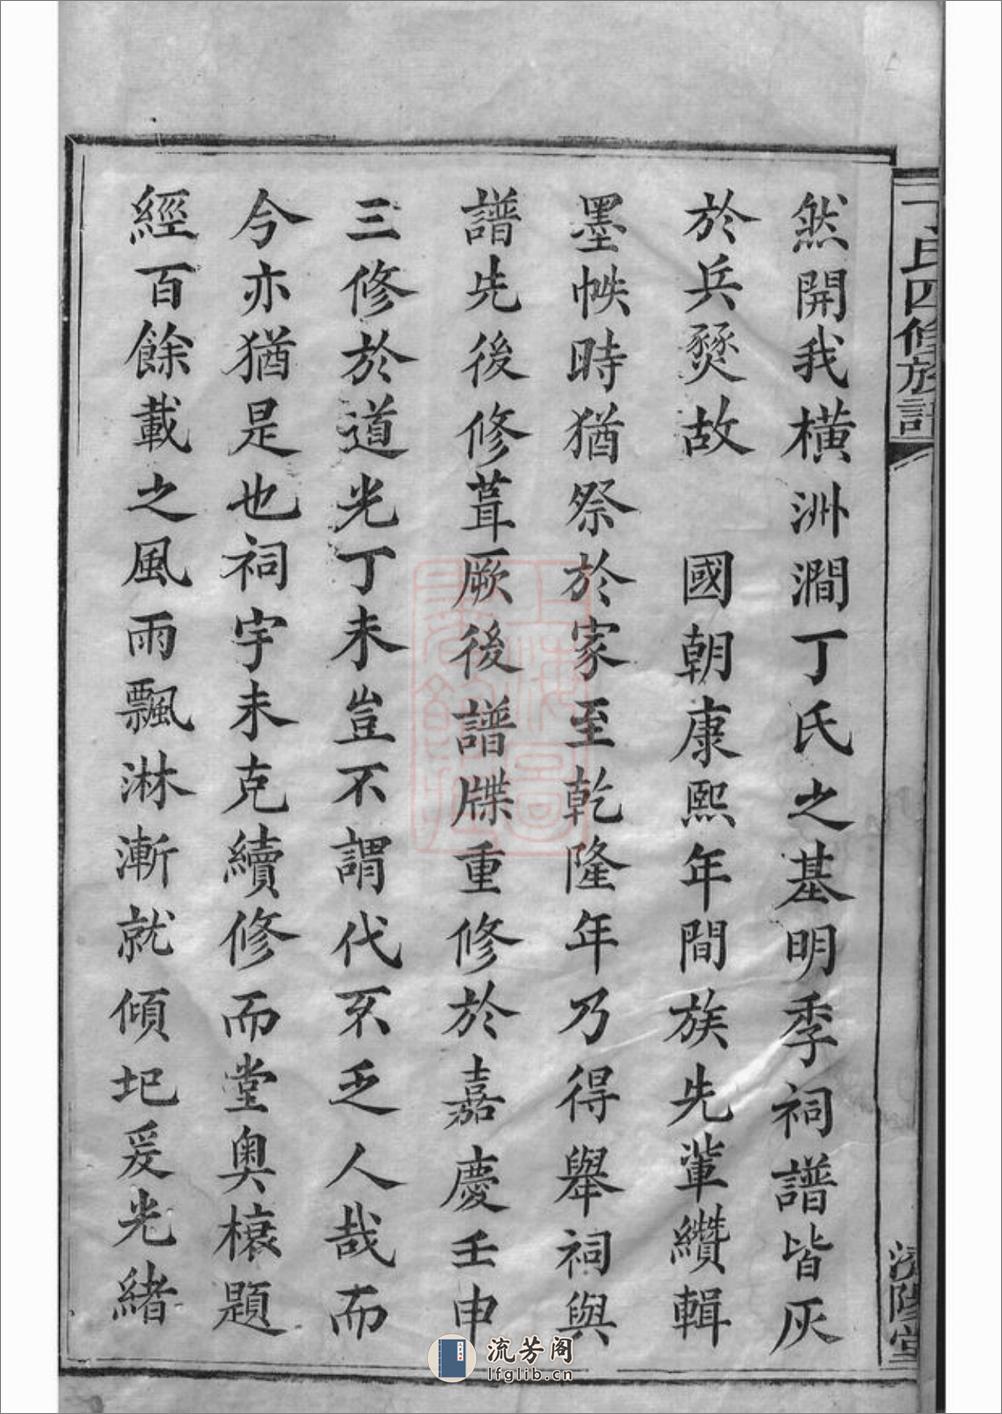 丁氏四修族譜
濟陽堂
然開我橫洲澗丁氏之基明季祠譜皆灰
於兵燹故　國朝康熙年間族先輩纘輯
墨帙時猶祭於家至乾隆年乃得舉祠與
譜先後修葺厥後譜牒重修於嘉慶壬申
三修於道光丁未豈不謂代不乏人哉而
今亦猶是也祠宇未克續修而堂奧榱題
經百餘載之風雨飄淋漸就傾圯爰光緒
流芳阁
lfglib.cn